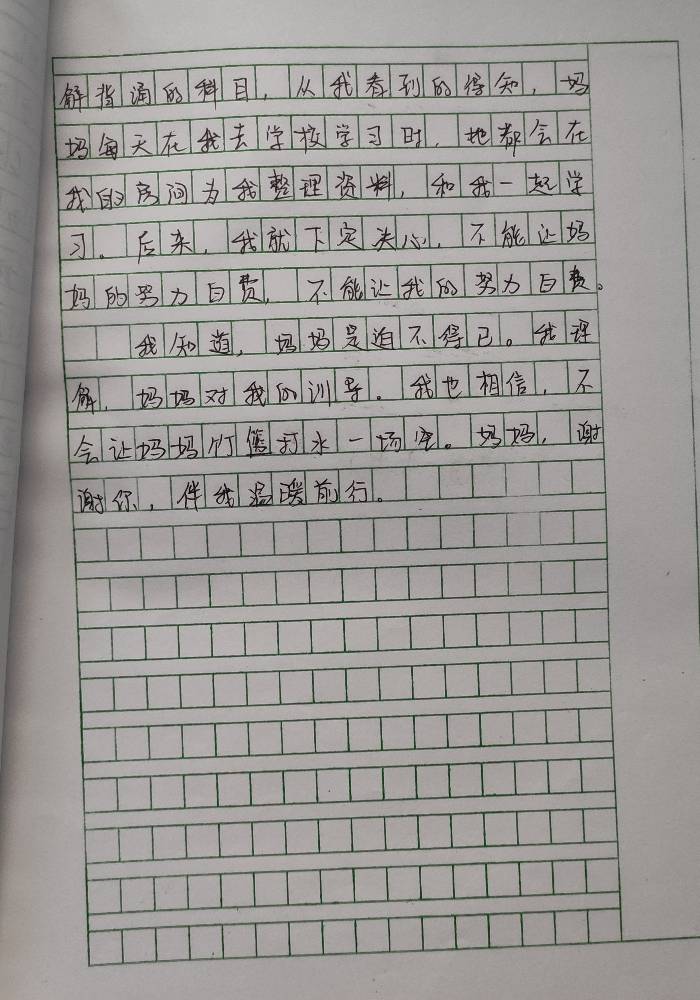 解背诵的科目，从我看到的得知，妈
妈每天在我去学校学习时，她都会在
我的房间为我整理资料，和我一起学
习。后来，我就下定决心，不能让妈
妈的努力白费，不能让我的努力白费。
我知道，妈妈是迫不得已。我理
解，妈妈对我的训导。我也相信，不
会让妈妈竹篮打水一场空。妈妈，谢
谢你，伴我温暖前行。